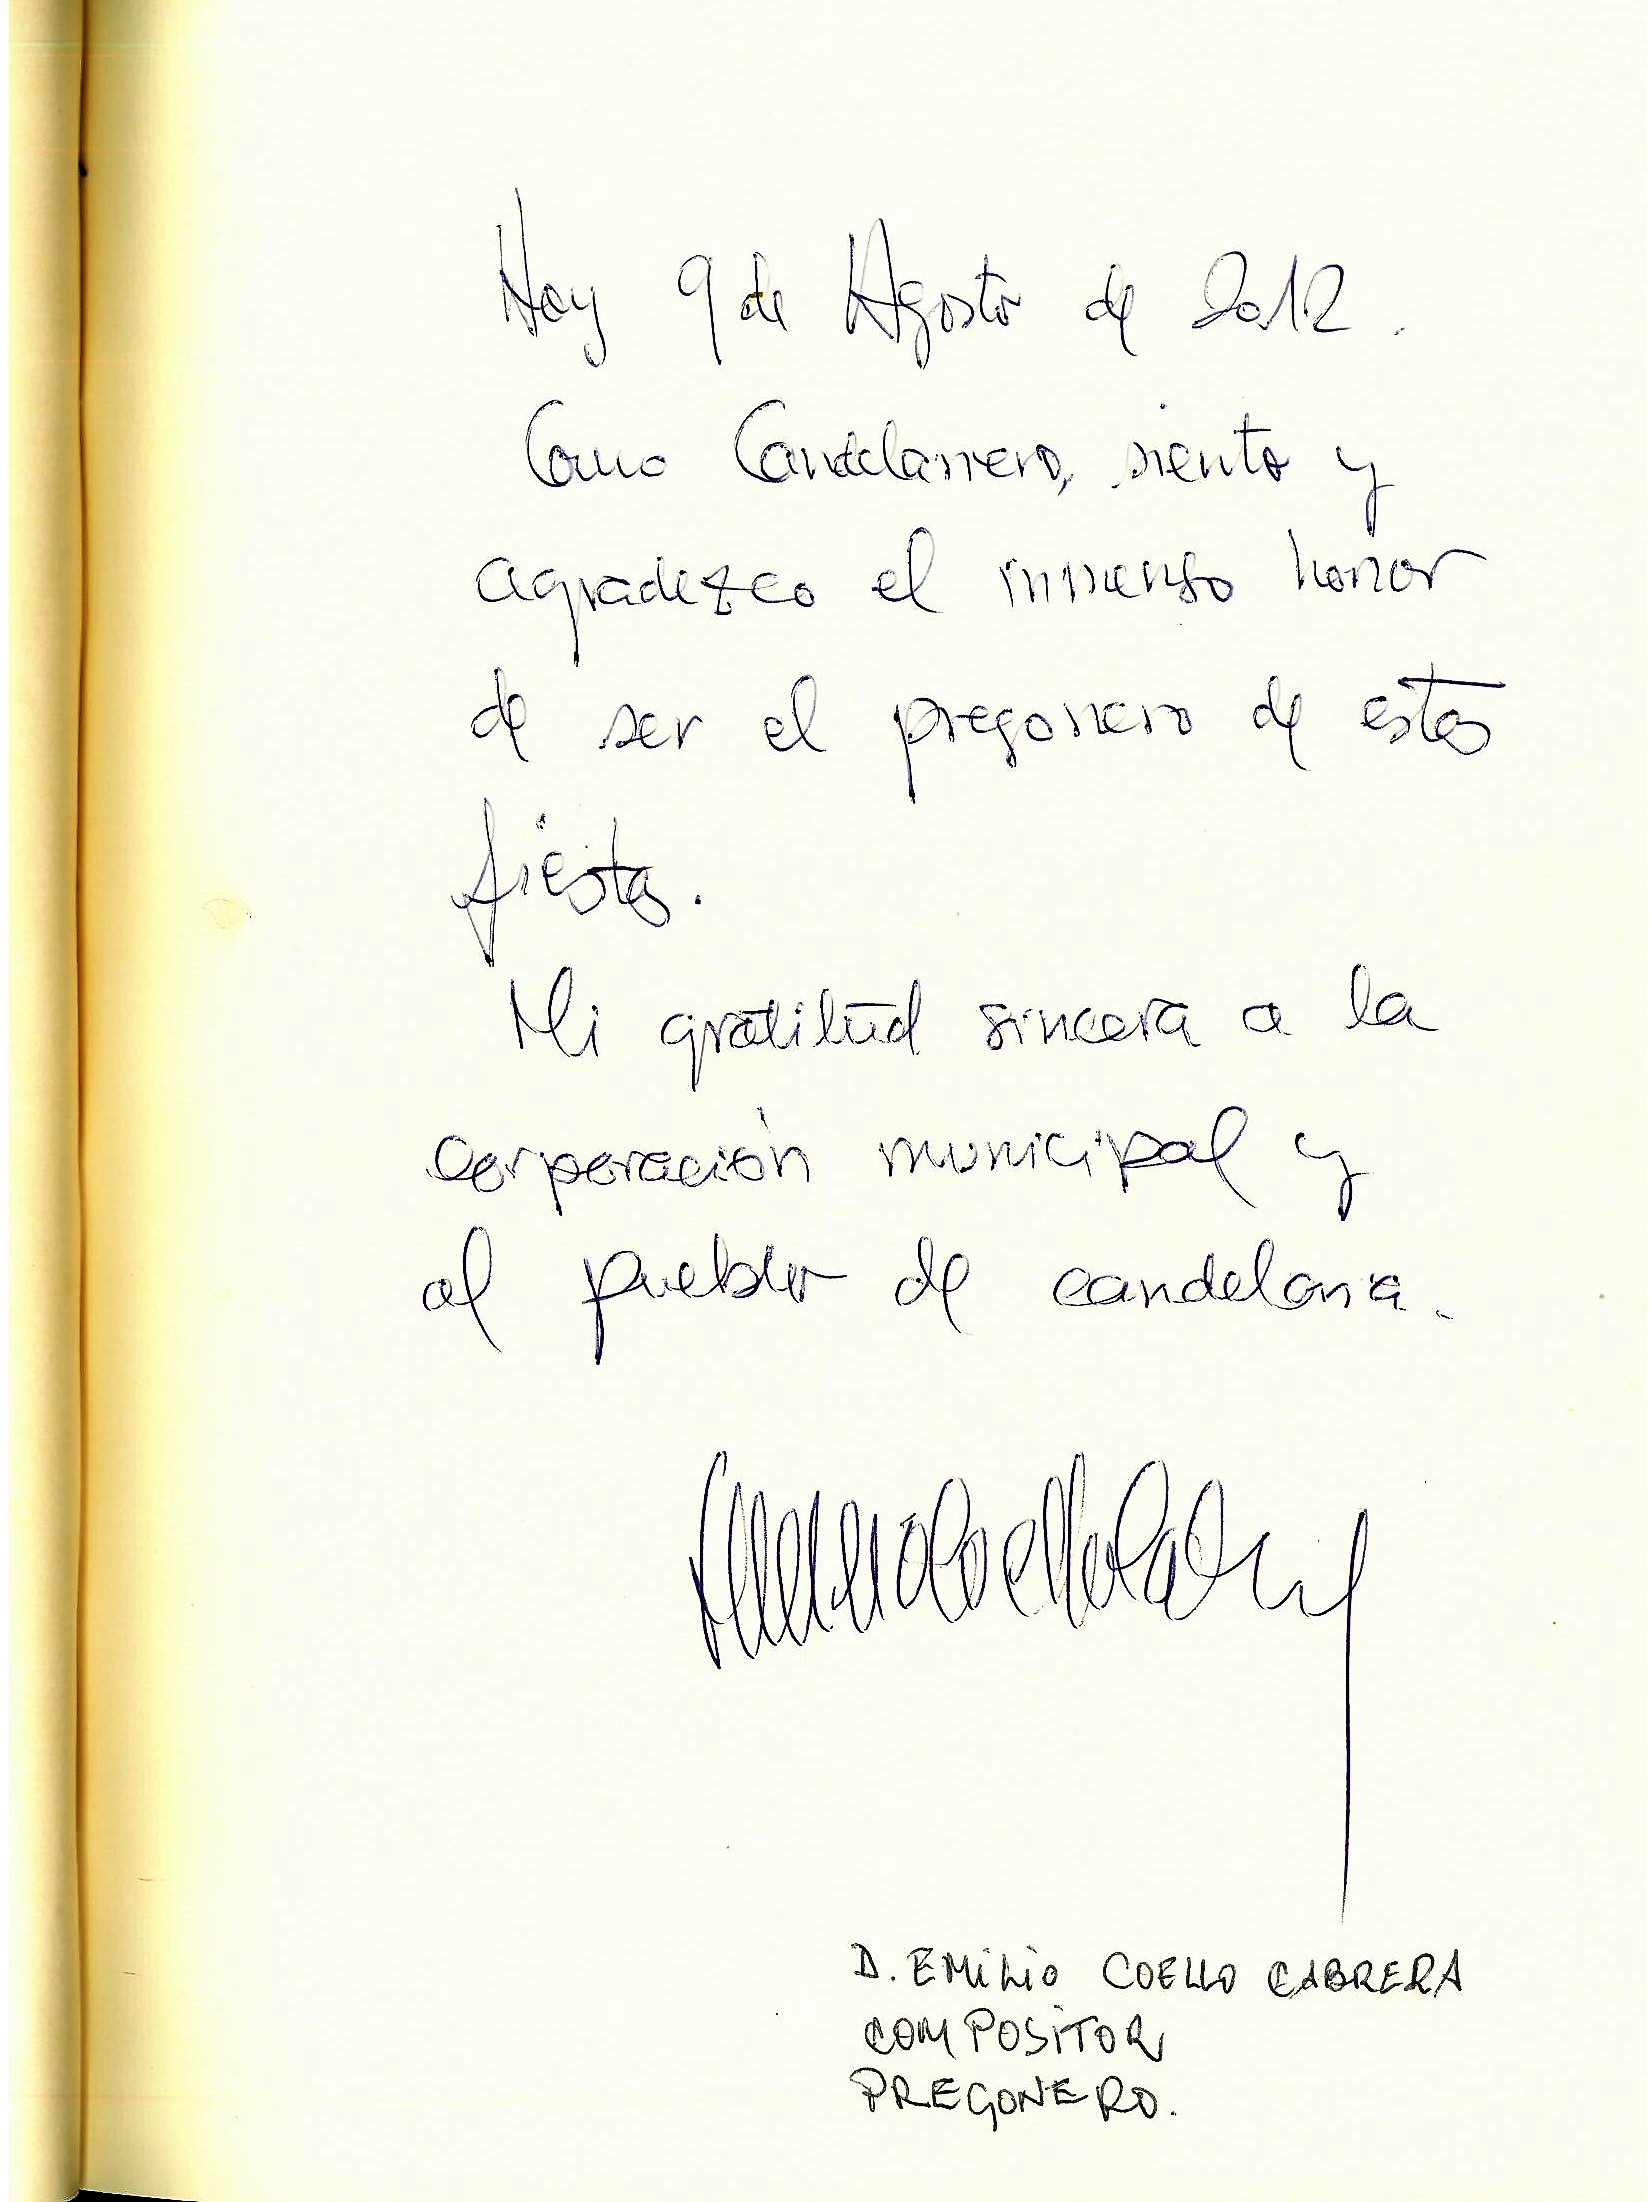 Hoy 9 de Agosto de 2012.
Como Candelariero, siento y
agradezco el inmenso honor
de ser el pregonero de estas
fiestas.
Mi gratitud sincera a la
corporación municipal y
al pueblo de candelaria.
Emilio Coello Cabrera
D. EMILIO COELLO CABRERA
COMPOSITOR
PREGONERO.